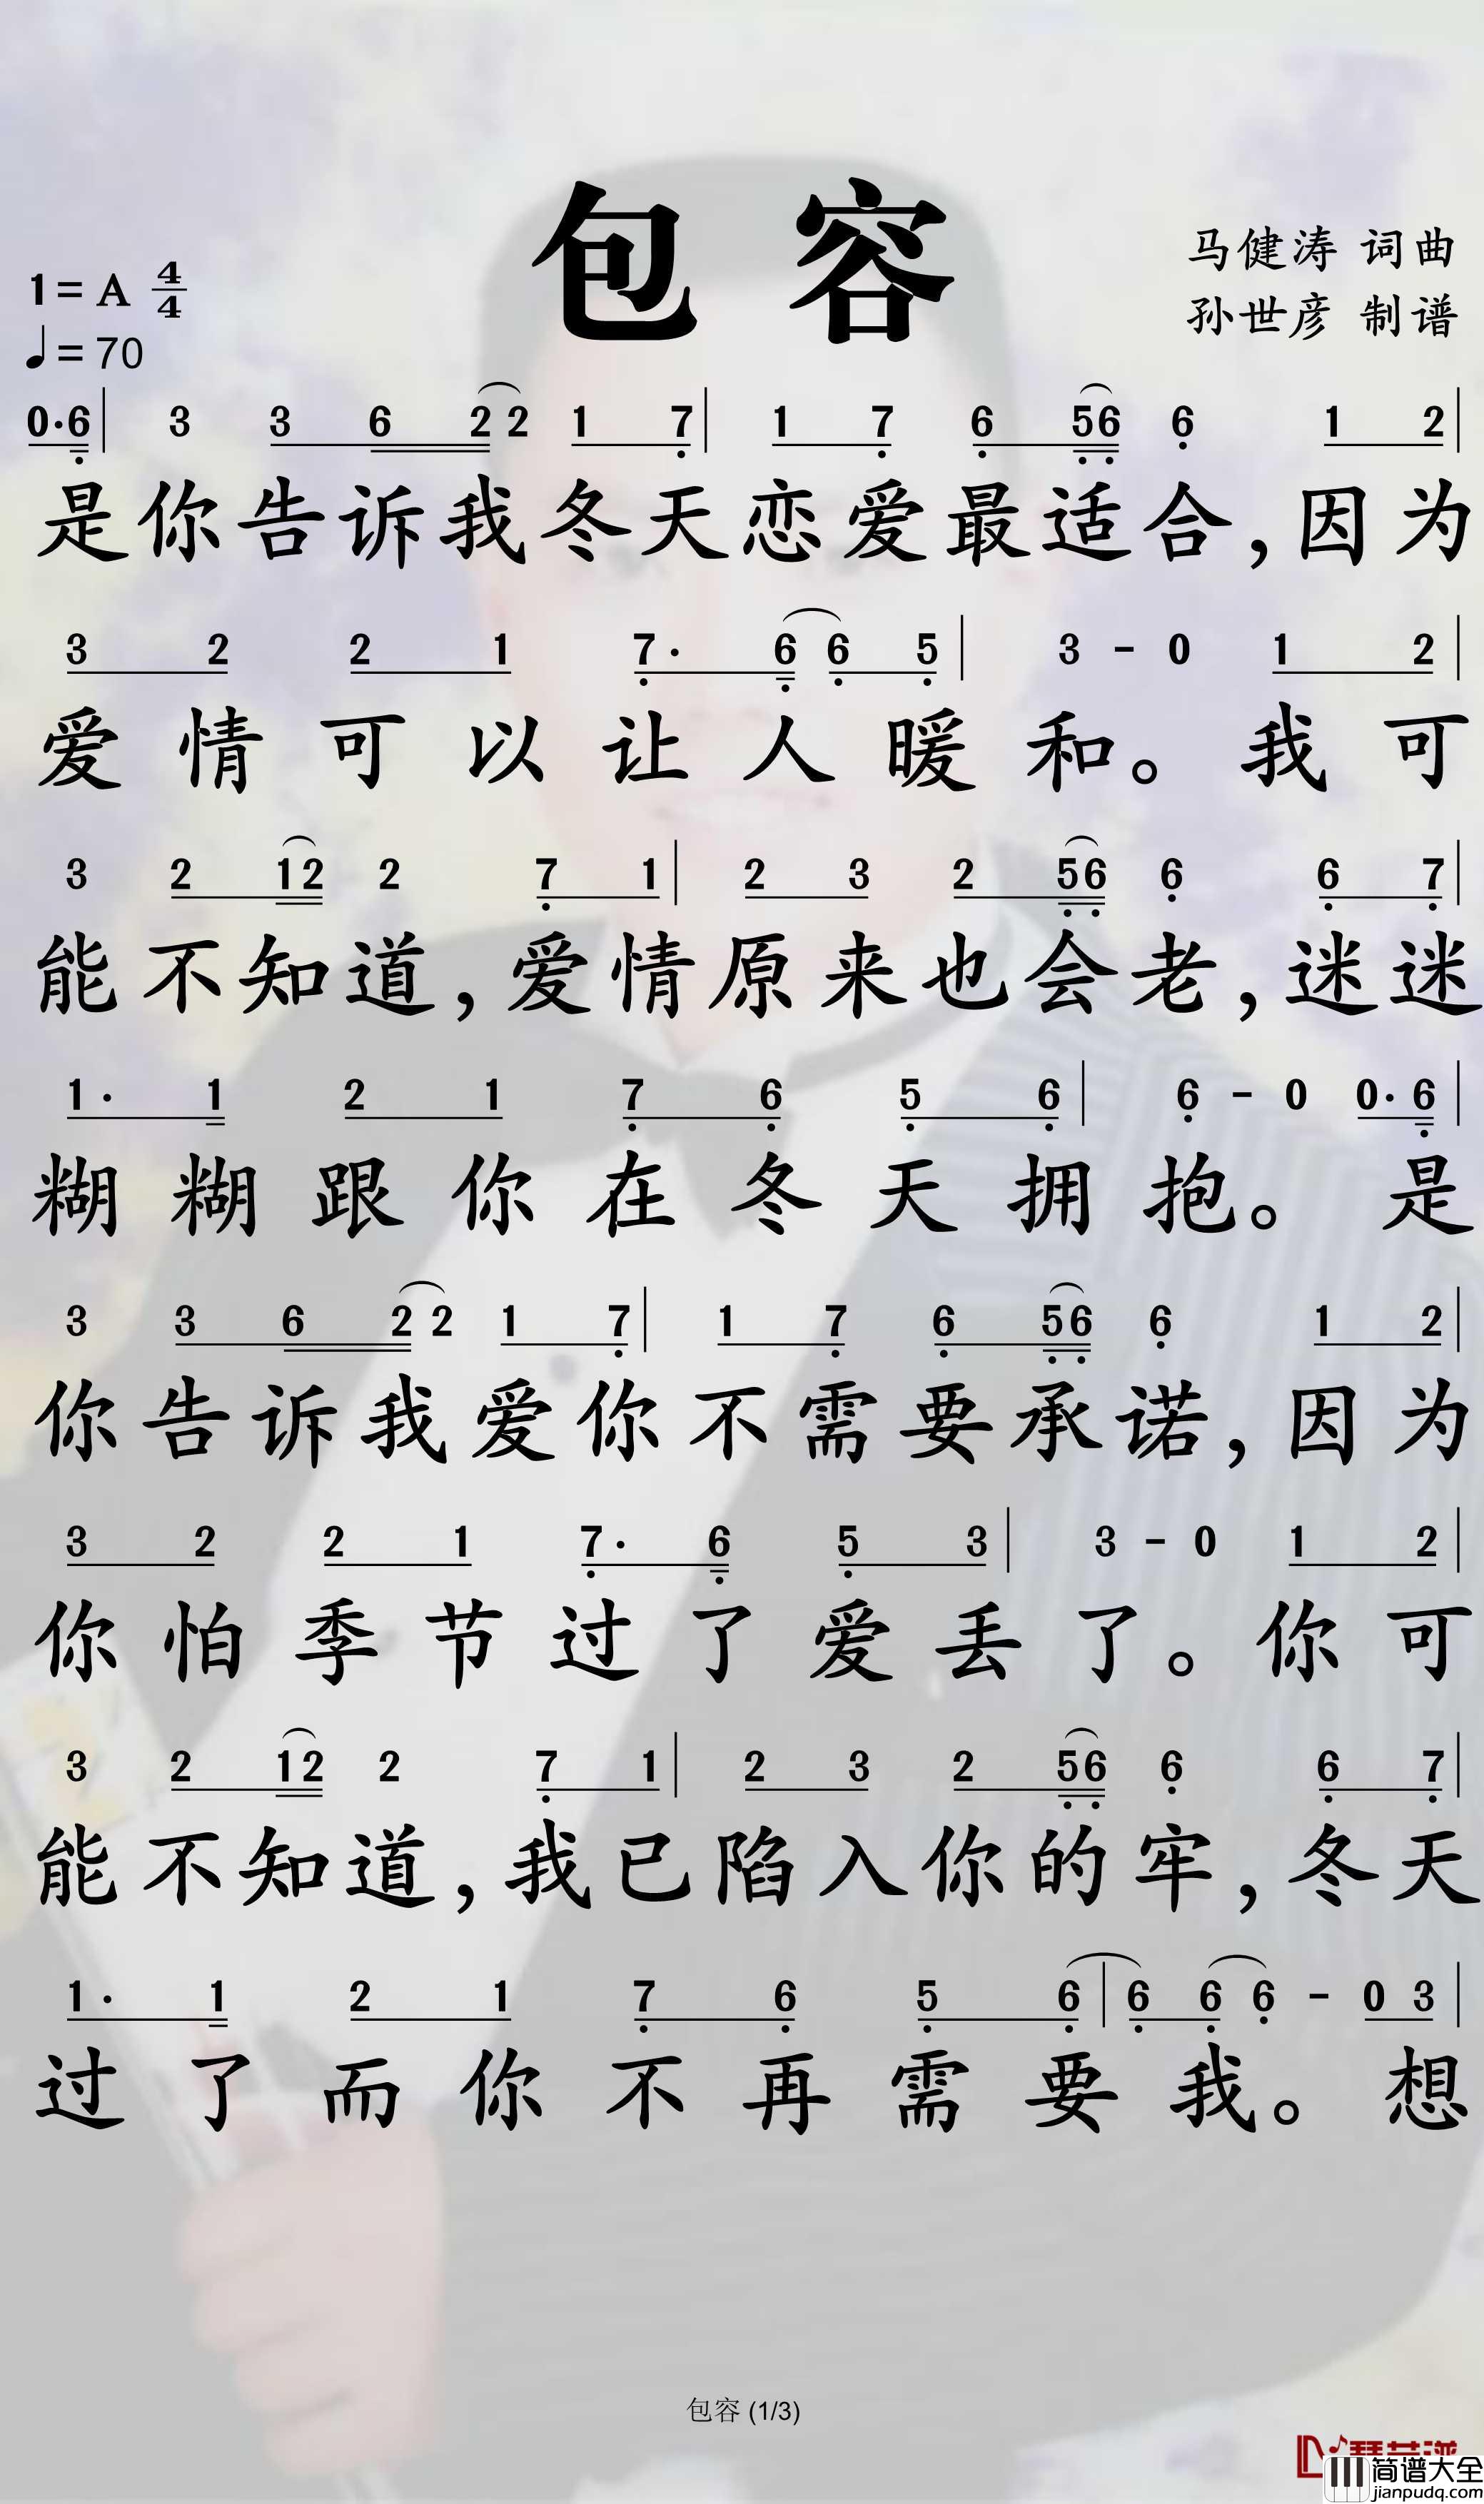 包 容
马健涛 词曲
孙世彦 制谱
1= A 4/4
♩= 70
0·6 | 3 3 6 2 2 1 7 | 1 7 6 56 6 1 2 |
是你告诉我冬天恋爱最适合,因为
3 2 2 1 7· 6 6 5 | 3 - 0 1 2 |
爱情可以让人暖和。我可
3 2 12 2 7 1 | 2 3 2 56 6 6 7 |
能不知道,爱情原来也会老,迷迷
1· 1 2 1 7 6 5 6 | 6 - 0 0·6 |
糊糊跟你在冬天拥抱。是
3 3 6 2 2 1 7 | 1 7 6 56 6 1 2 |
你告诉我爱你不需要承诺,因为
3 2 2 1 7· 6 5 3 | 3 - 0 1 2 |
你怕季节过了爱丢了。你可
3 2 12 2 7 1 | 2 3 2 56 6 6 7 |
能不知道,我已陷入你的牢,冬天
1· 1 2 1 7 6 5 6 | 6 6 6 - 0 3 |
过了而你不再需要我。想
包容 (1/3)
简谱大全
jianpudq.com